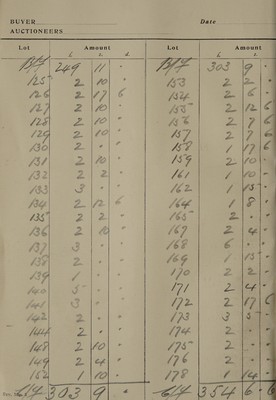 BUYER Date
AUCTIONEERS
Lot Amount Lot Amount
£ s. d. £ s. d.
B/f 249 11 " B/f 303 9 "
125 2 10 " 153 2 2 "
126 2 17 6 154 2 6 "
127 2 10 " 155 2 12 6
128 2 10 " 156 2 7 6
129 2 10 " 157 2 7 6
130 2 " " 158 1 17 6
131 2 10 " 159 2 10 "
132 2 2 " 161 1 10 "
133 3 " " 162 1 15 "
134 2 12 6 164 1 8 "
135 2 2 " 165 2 " "
136 2 10 " 167 2 4 "
137 3 " " 168 6 " "
138 2 " " 169 1 15 "
139 1 " " 170 2 2 "
140 5 " " 171 2 4 "
141 3 " " 172 2 17 6
142 2 " " 173 3 5 "
144 2 " " 174 2 " "
148 2 10 " 175 2 10 "
149 2 4 " 176 2 " "
162 1 10 " 178 1 14 "
C/f 303 9 " C/f 354 6 6